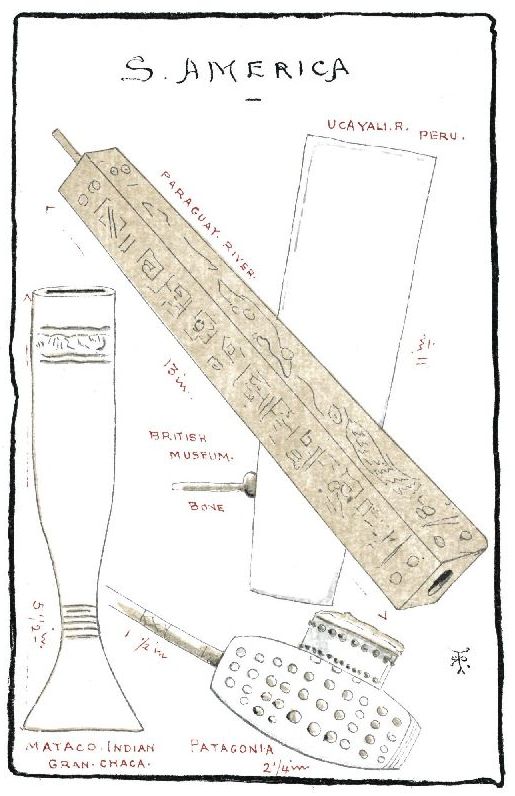 S. AMERICA
UCAYALI. R. PERU.
PARAGUAY. RIVER.
13 in.
BRITISH
MUSEUM.
BONE
1 1/2 in
MATACO. INDIAN
GRAN. CHACA.
PATAGONIA
2 1/4 in